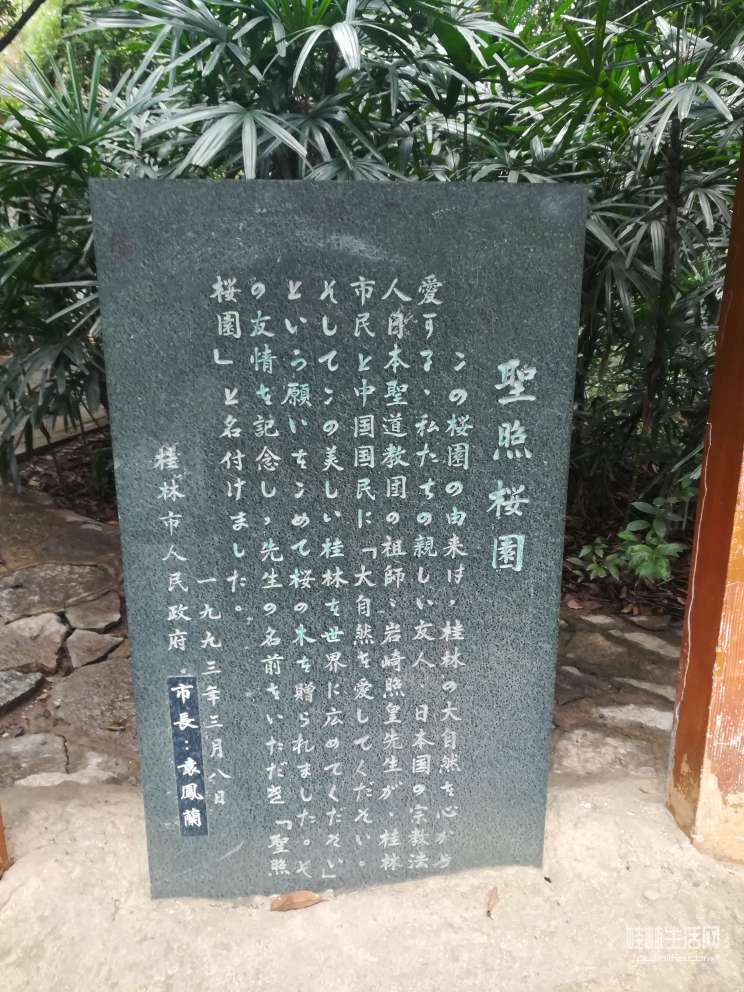 聖照桜園
この桜園の由来は，桂林の大自然を心から
愛する、私たちの親しい友人、日本国の宗教法
人日本聖道教団の祖師、岩崎照皇先生が、桂林
市民と中国国民に「大自然を愛してください。
そしてこの美しい桂林を世界に広めてください」
という願いをこめて桜の木を贈られました。そ
の友情を記念し，先生の名前をいただき「聖照
桜園」と名付けました。
一九九三年三月八日
桂林市人民政府．市長：袁鳳蘭
桂林生活网
guilinlife.com